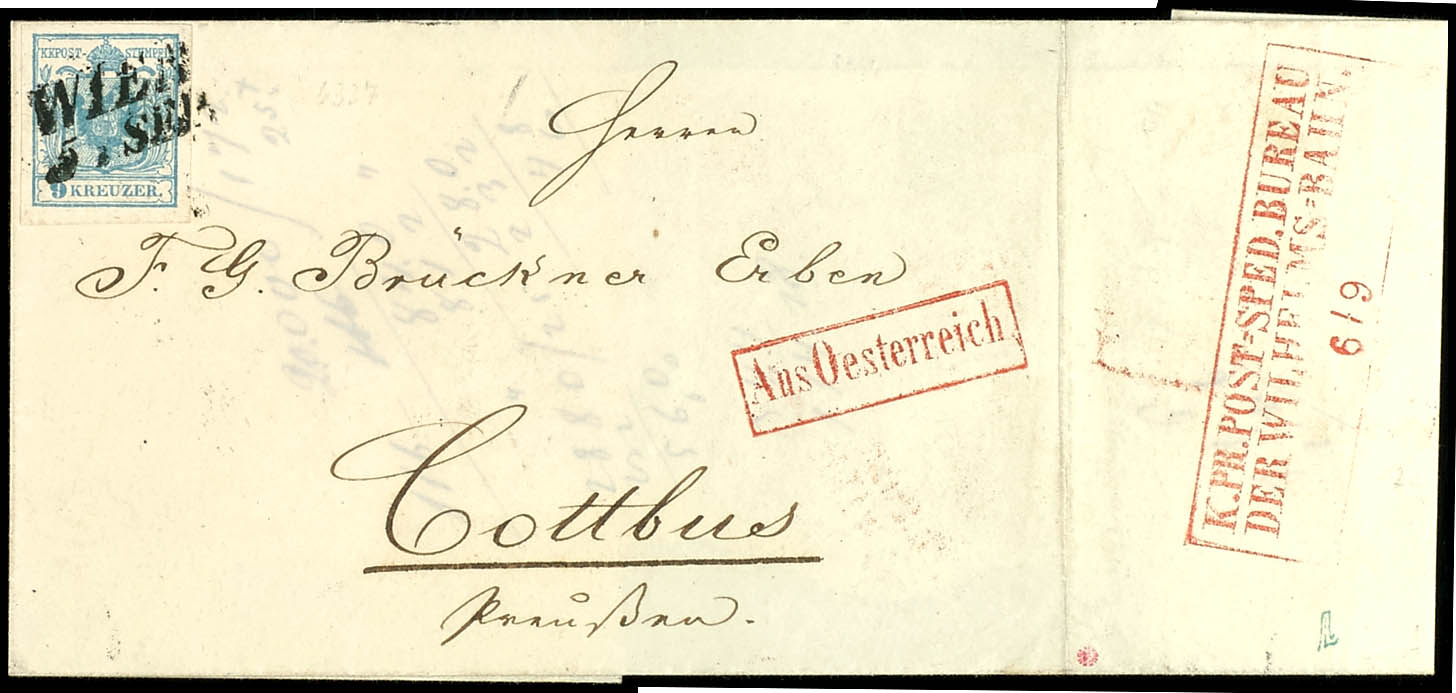 KKPOST-STEMPEL
WIEN
5 . SEP.
9 KREUZER.
Herren
F. G. Brückner Erben
Aus Oesterreich
Cottbus
Preußen.
K.PR.POST=SPED.BUREAU
DER WILHELMS=BAHN.
6/9